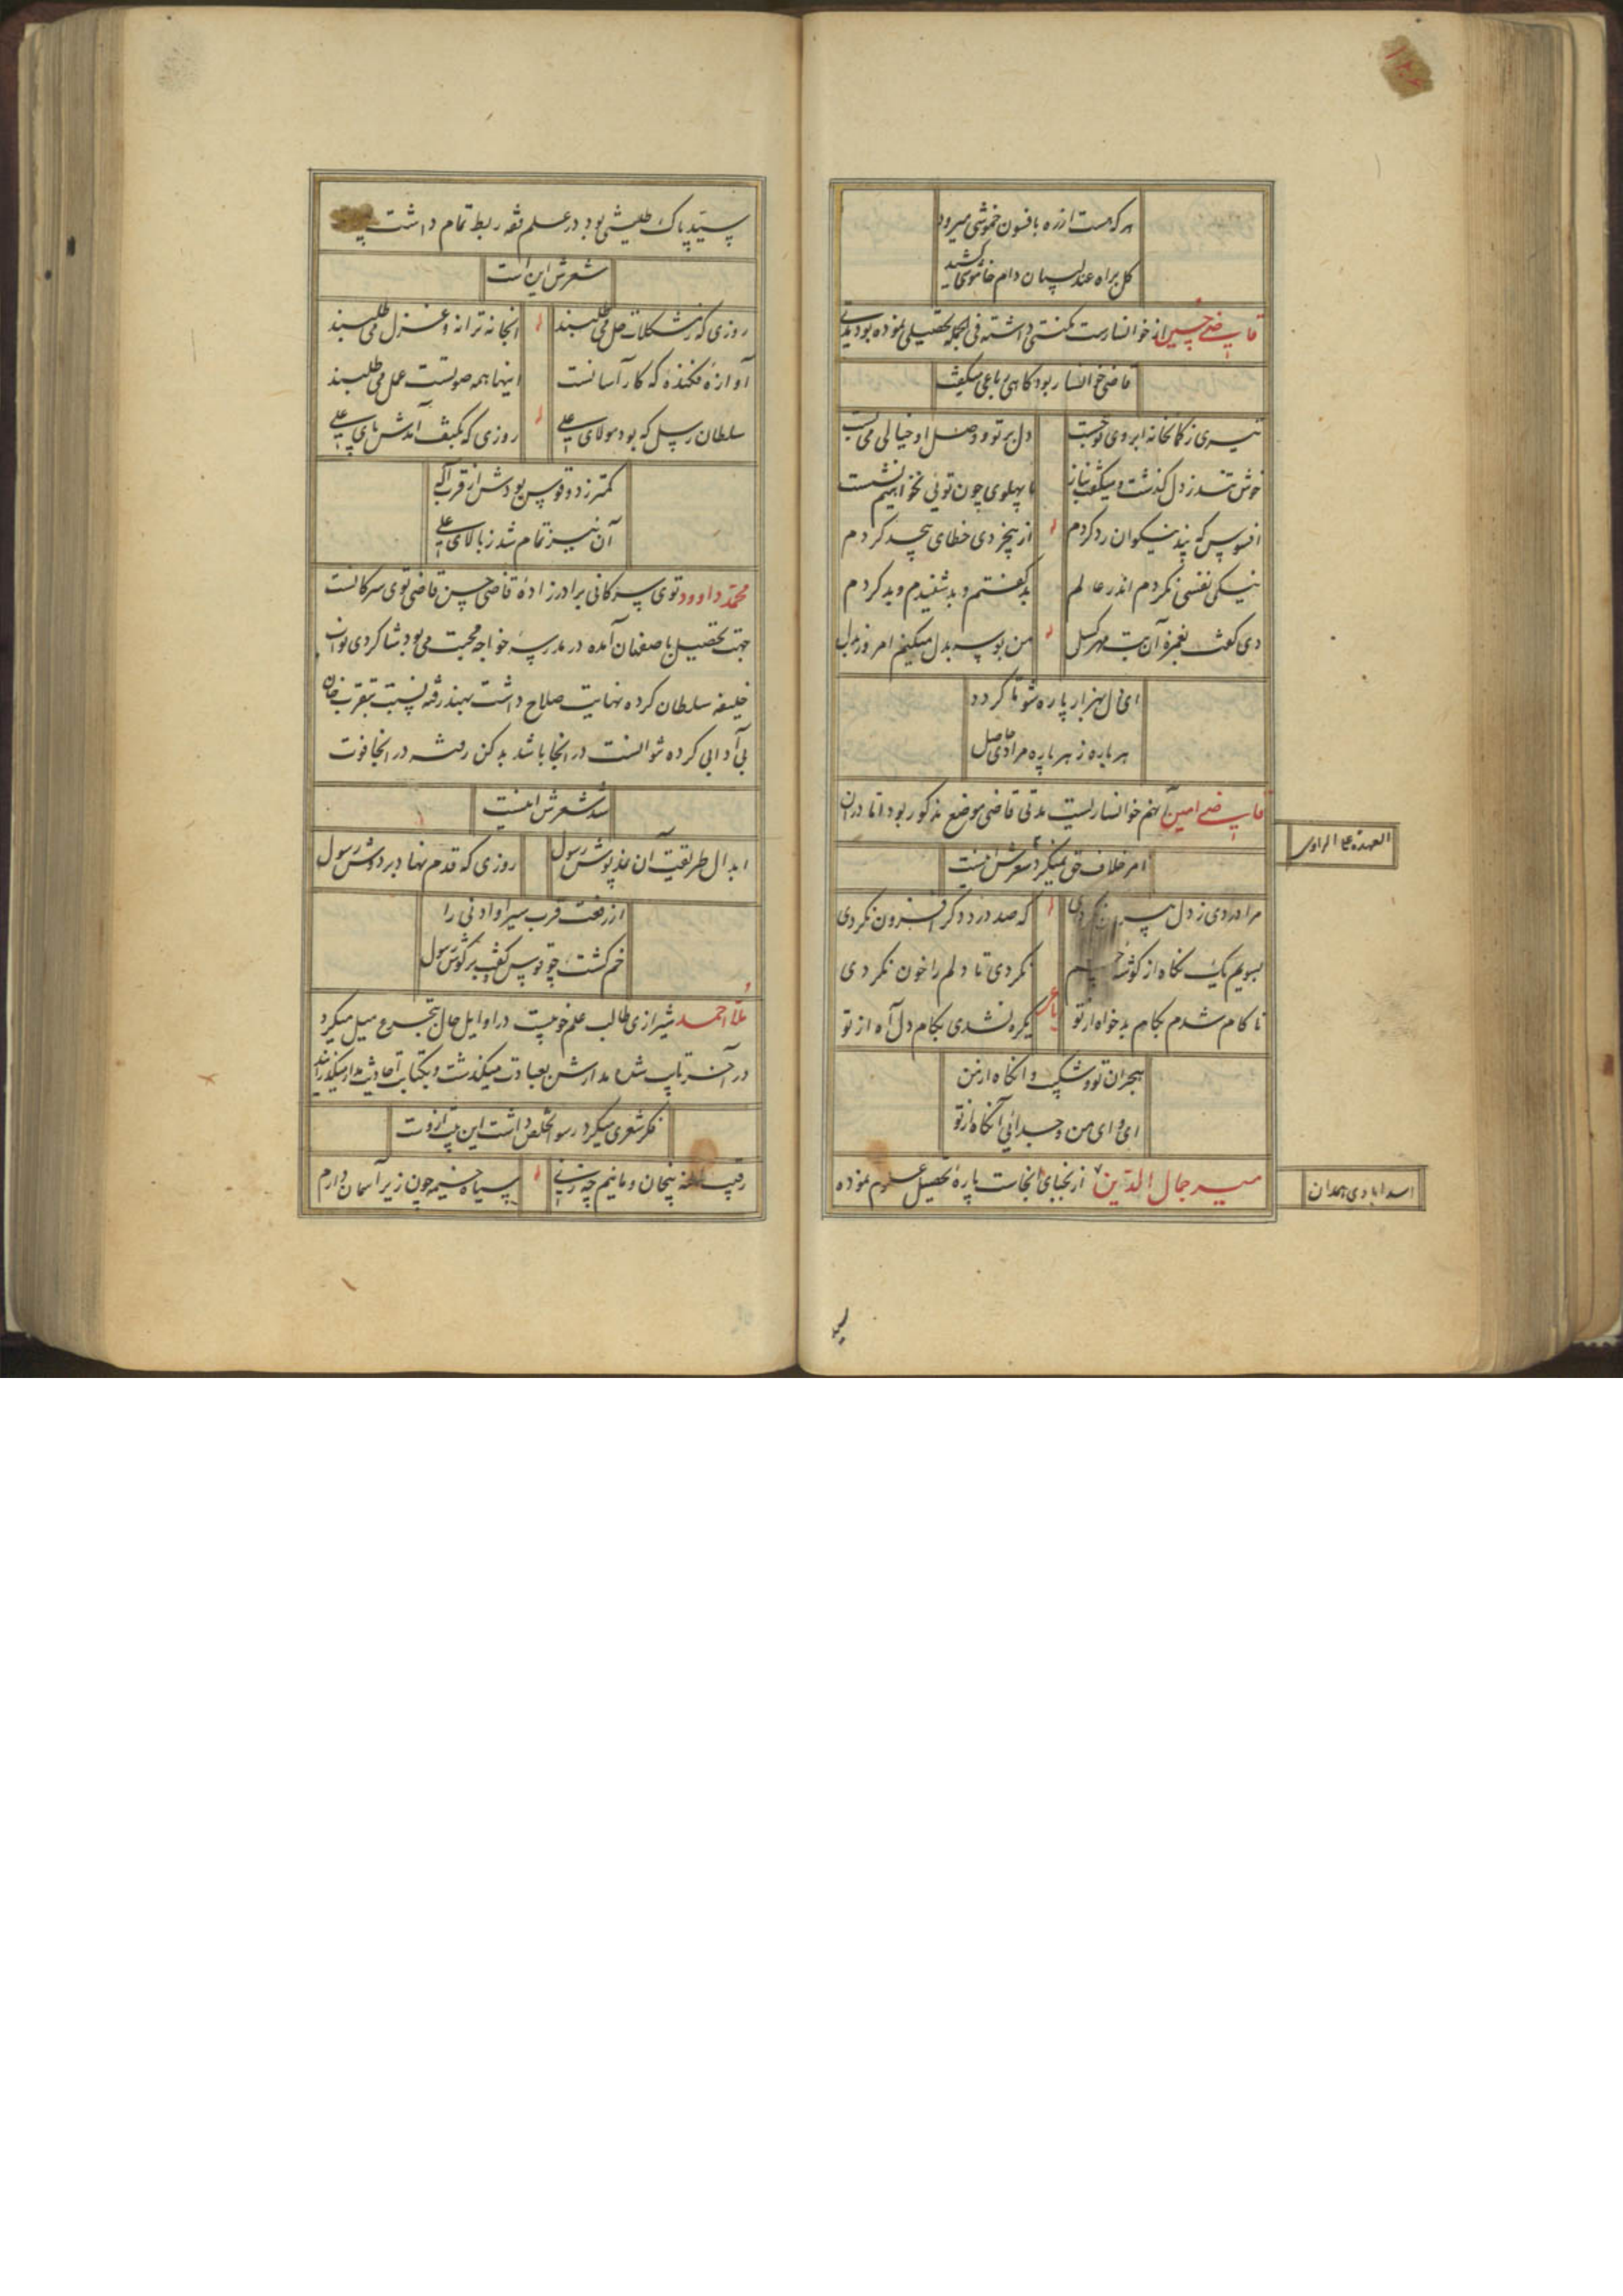 هر که هست از ره بافسون خموشی میرود
گل براه عندلیبان دام خاموشی کشید
قاضی حسین از خوانسارست مکنتی داشته فی الجمله تحصیلی نموده بود مدتی
قاضی خوانسار بود گاهی رباعی میگفت
تیری ز کمانخانه ابروی تو جست
دل پرتو وصل او خیالی می بست
خوش خوش ز دل گذشت و میگفت بناز
ما پهلوی چون توئی نخواهیم نشست
افسوس که پند نیکوان رد کردم
از بیخردی خطای بیحد کردم
نیکی نفسی نکردم اندر عالم
بد گفتم و بد شنیدم و بد کردم
دی گفت بغمزه آن بت مهر گسل
من بوسه بدل میکنم امروز بدل
ای دل بهزار پاره شو تا گردد
هر پاره ز هر پاره مرادی حاصل
قاضی امین آنهم خوانساریست مدتی قاضی موضع مذکور بود اما در آن
العهدة علی الراوی
امر خلاف حق نمیکرد شعرش اینست
مرا دردی ز دل بیرون نکردی
که صد درد دگر افزون نکردی
بسویم یک نگاه از گوشه چشم
نکردی تا دلم را خون نکردی
ناکام شدم بکام بدخواه از تو
رباعی
یکره نشدی بکام دل آه از تو
هجران تو و شکیب و آنگاه از من
ای وای من و جدائی آنگاه از تو
میر جمال الدین از نجبای آنجاست پاره تحصیل علوم نموده
اسدابادی همدان
سید
سید پاک طینتی بود در علم فقه ربط تمام داشت
شعرش این است
روزی که ز مشکلات حل می طلبند
آنجا نه ترانه و غزل می طلبند
آوازه فکنده که کار آسانست
اینها همه صوتست عمل می طلبند
سلطان رسل که بود مولای علی
روزی که بکتف آمدش پای علی
کمتر ز دو قوس بودش از قرب اله
آن نیز تمام شد ز بالای علی
محمد داوود توی سرکانی برادرزاده قاضی حسن قاضی توی سرکانست
جهت تحصیل باصفهان آمده در مدرسه خواجه محبت می بود شاگردی نواب
خلیفه سلطان کرده نهایت صلاح داشت بهند رفته بسبب تقرب خان
بی آدابی کرده نتوانست در آنجا باشد بدکن رفت در آنجا فوت
شد شعرش اینست
ابدال طریقت آن نمدپوش رسول
روزی که قدم نهاد بر دوش رسول
از رفعت قرب سیر او ادنی را
خم گشت چو قوس کتف بر گوش رسول
ملا احمد شیرازی طالب علم خوبیست در اوایل حال بتجرع میل میکرد
در آخر تایب شده مدارش بعبادت میگذشت و بکتابت احادیث مدار میگذرانید
فکر شعری میکرد رسوا تخلص داشت این بیت ازوست
سیاه خیمه چون زیر آسمان دارم